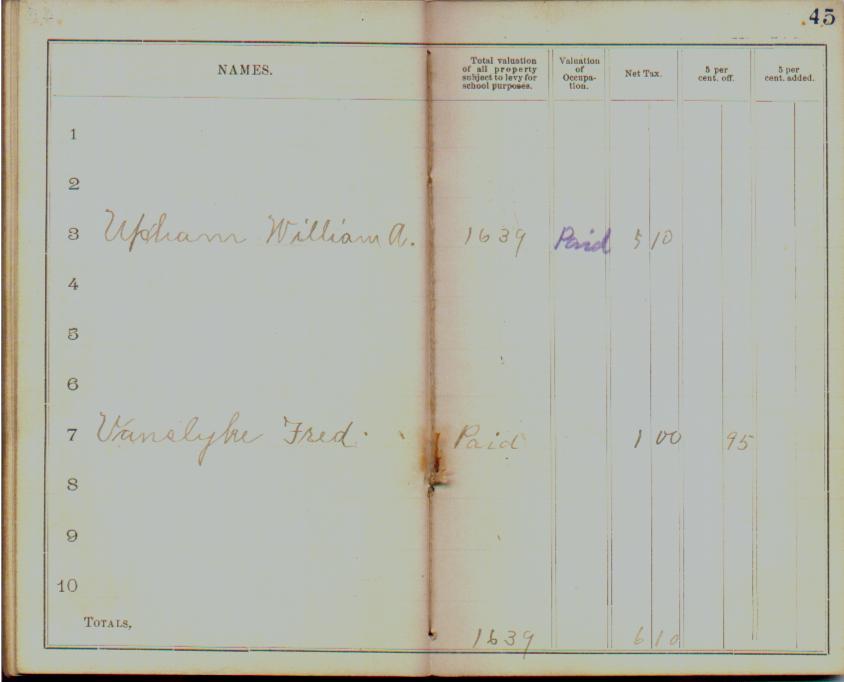 45
NAMES. Total valuation of all property subject to levy for school purposes. Valuation of Occupa-tion. Net Tax. 5 per cent. off. 5 per cent. added.
1
2
3 Upham William A. 1639 Paid 5 10
4
5
6
7 Vanslyke Fred. Paid 1 00 95
8
9
10
TOTALS, 1639 6 10